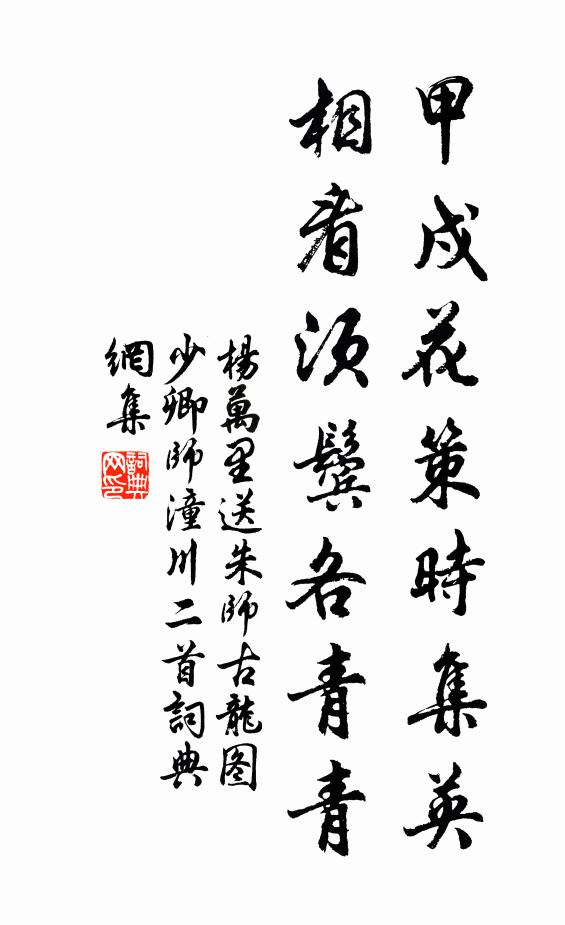 甲戌花策時集英
相看須鬢各青青
楊萬里送朱師古龍图
少卿師潼川二首詞典
網集
詞典网印